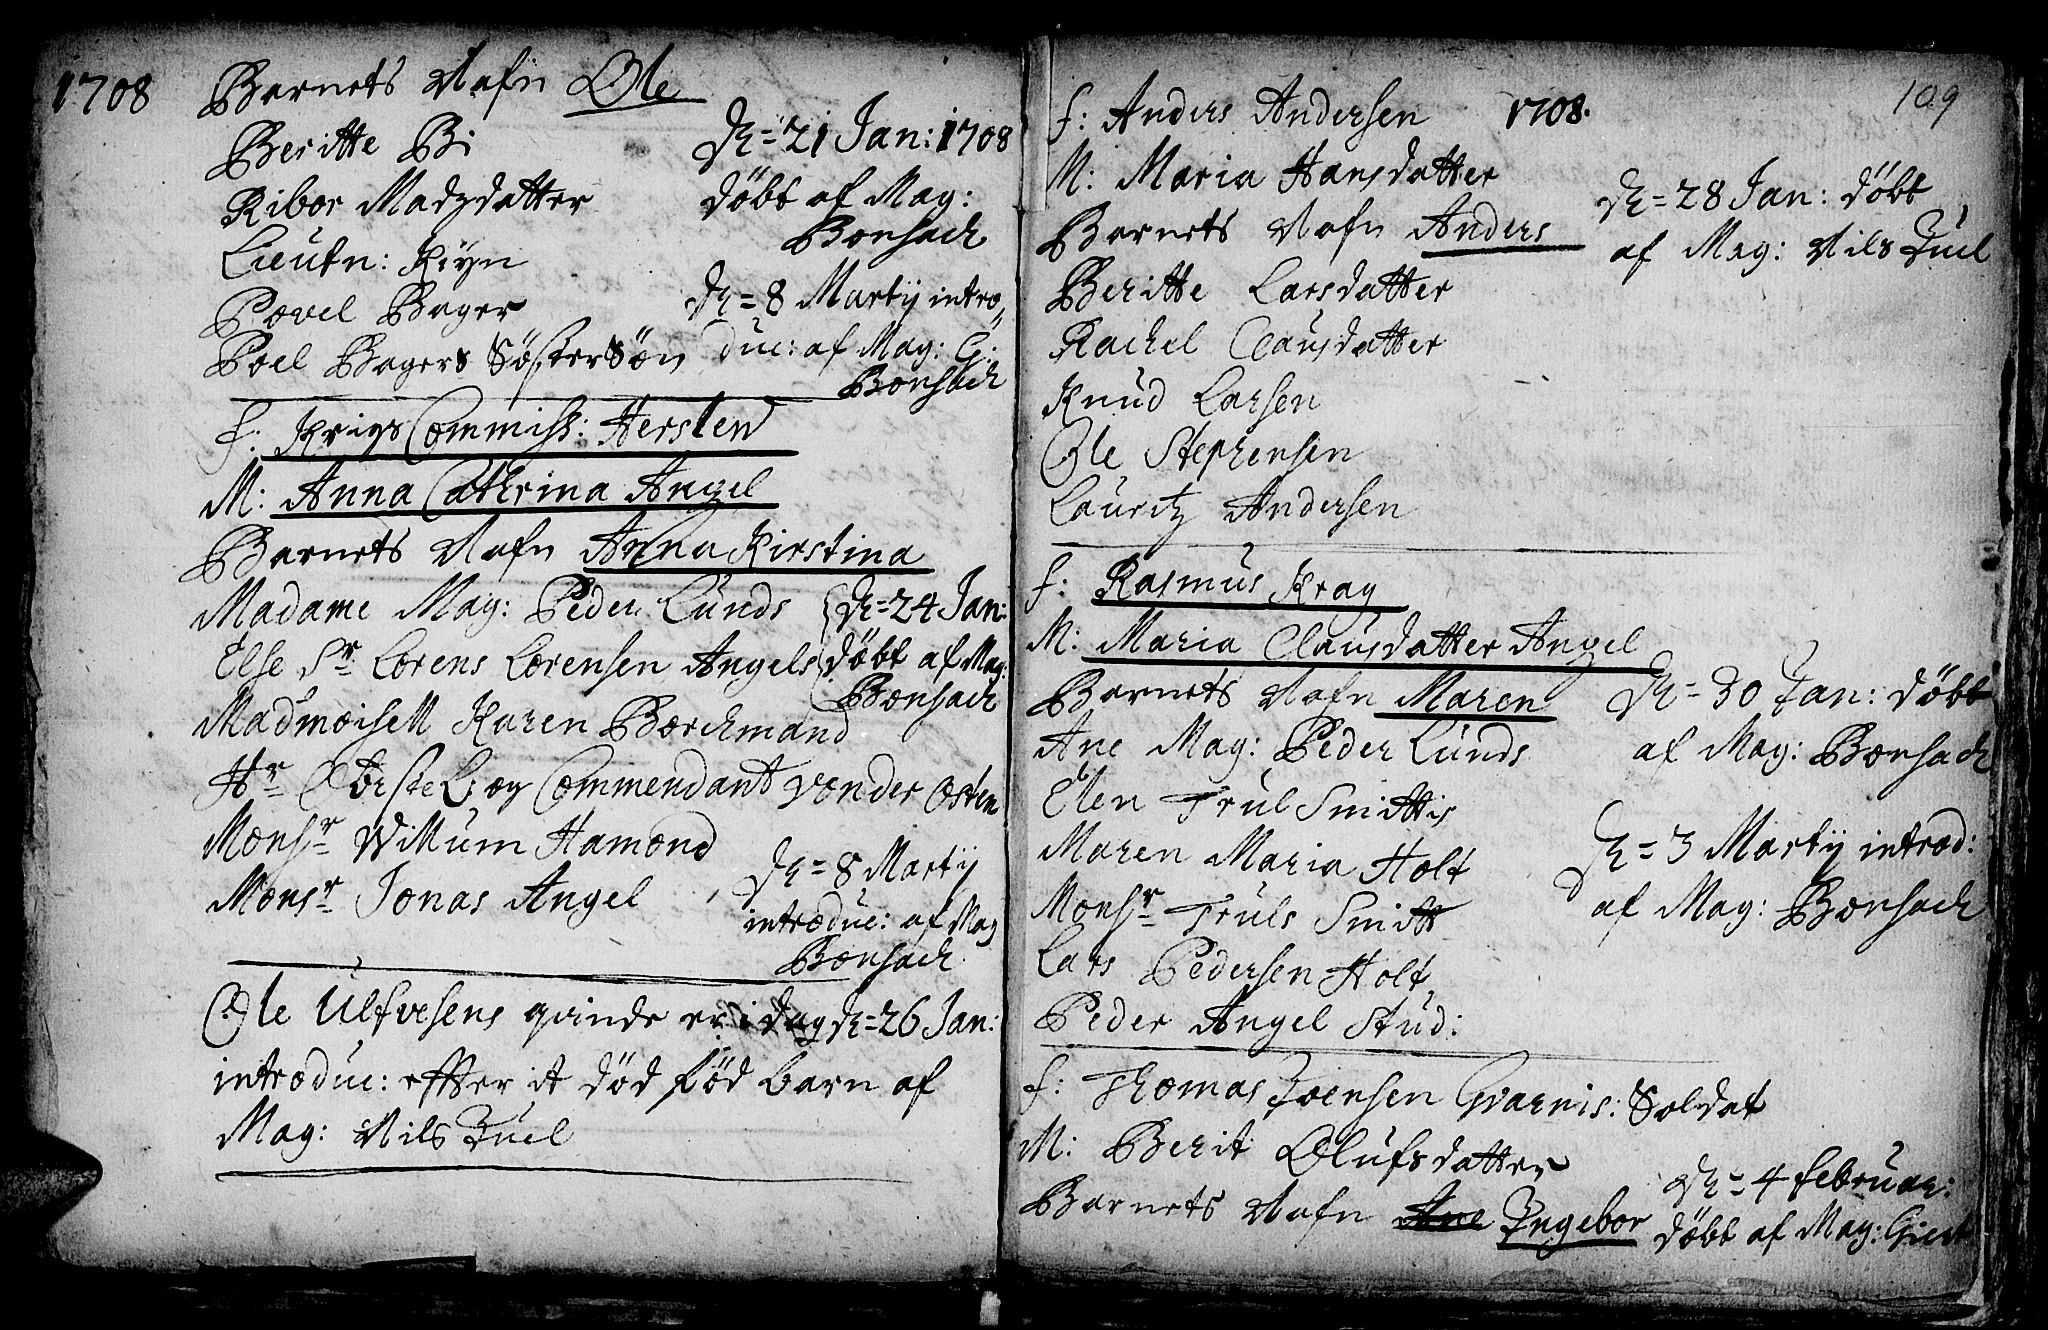 1708
Barnets Nafn Ole
Beritte Bi
dn=21 Jan: 1708
Ribor Madzdatter
döbt af Mag:
Bonsach
Lieutn: Krÿn
Povel Bager
dn=8 Martij intro
Poel Bagers SösterSön
duc: af Mag: G:
Bonsach
f: Krigs Commiss: Hersleu
M: Anna Cathrina Angel
Barnets Nafn Anna Kirstina
Madame Mag: Peder Lunds
dn=24 Jan:
Else Sr Lorens Lorensen Angels
döbt af Mag:
Bonsach
Madmoisell Karen Borchmand
Hr ObersteL: og Commendant vonder Osten
Monsr Willum Hamond
Monsr Jonas Angel
dn=8 Martij
introduc: af Mag
Bonsach
Ole Ulfvesens qvinde er i dag dn=26 Jan:
introduc: effter it död föd barn af
Mag: Nils Juel
109
f: Anders Andersen 1708.
M: Maria Hansdatter
Barnets Nafn Anders
dn=28 Jan: döbt
af Mag: Nils Juel
Beritte Larsdatter
Rachel Clausdatter
Knud Larsen
Ole Stephensen
Lauritz Andersen
f: Rasmus Krag
M: Maria Clausdatter Angel
Barnets Nafn Maren
dn=30 Jan: döbt
af Mag: Bonsach
Ane Mag: Peder Lunds
Elen Trul Smittis
Maren Maria Holt
dn=3 Martij introd:
af Mag: Bonsach
Monsr Truls Smitt
Lars Pedersen Holt
Peder Angel Stud:
f: Thomas Joensen Gvarnis: Soldat
M: Berit Olufsdatter
Barnets Nafn Ane Ingebor
dn=4 februar:
döbt af Mag: